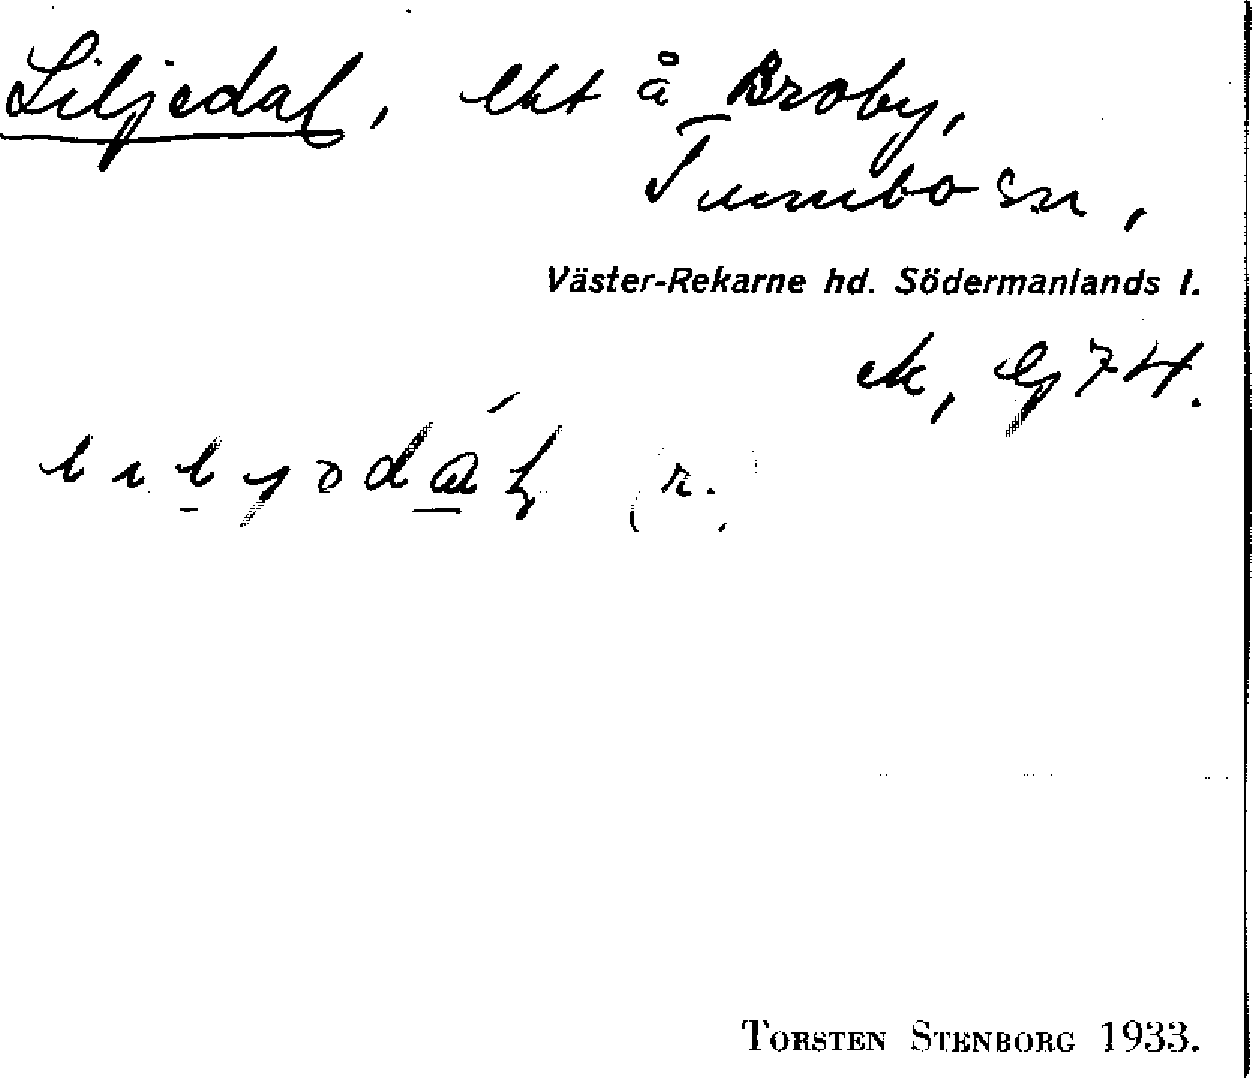 Liljedal, lht å Broby,
Tumbo sn,
Väster-Rekarne hd. Södermanlands l.
ek, Gj 74.
(r.)
TORSTEN STENBORG 1933.